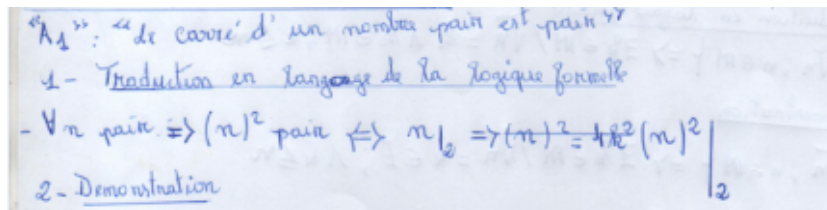 "A₁" : "Le carré d'un nombre pair est pair"
1 - Traduction en langage de la logique formelle
- ∀ n pair. => (n)² pair <=> n|₂ => (n)² = 4k² (n)² |₂
2 - Demonstration